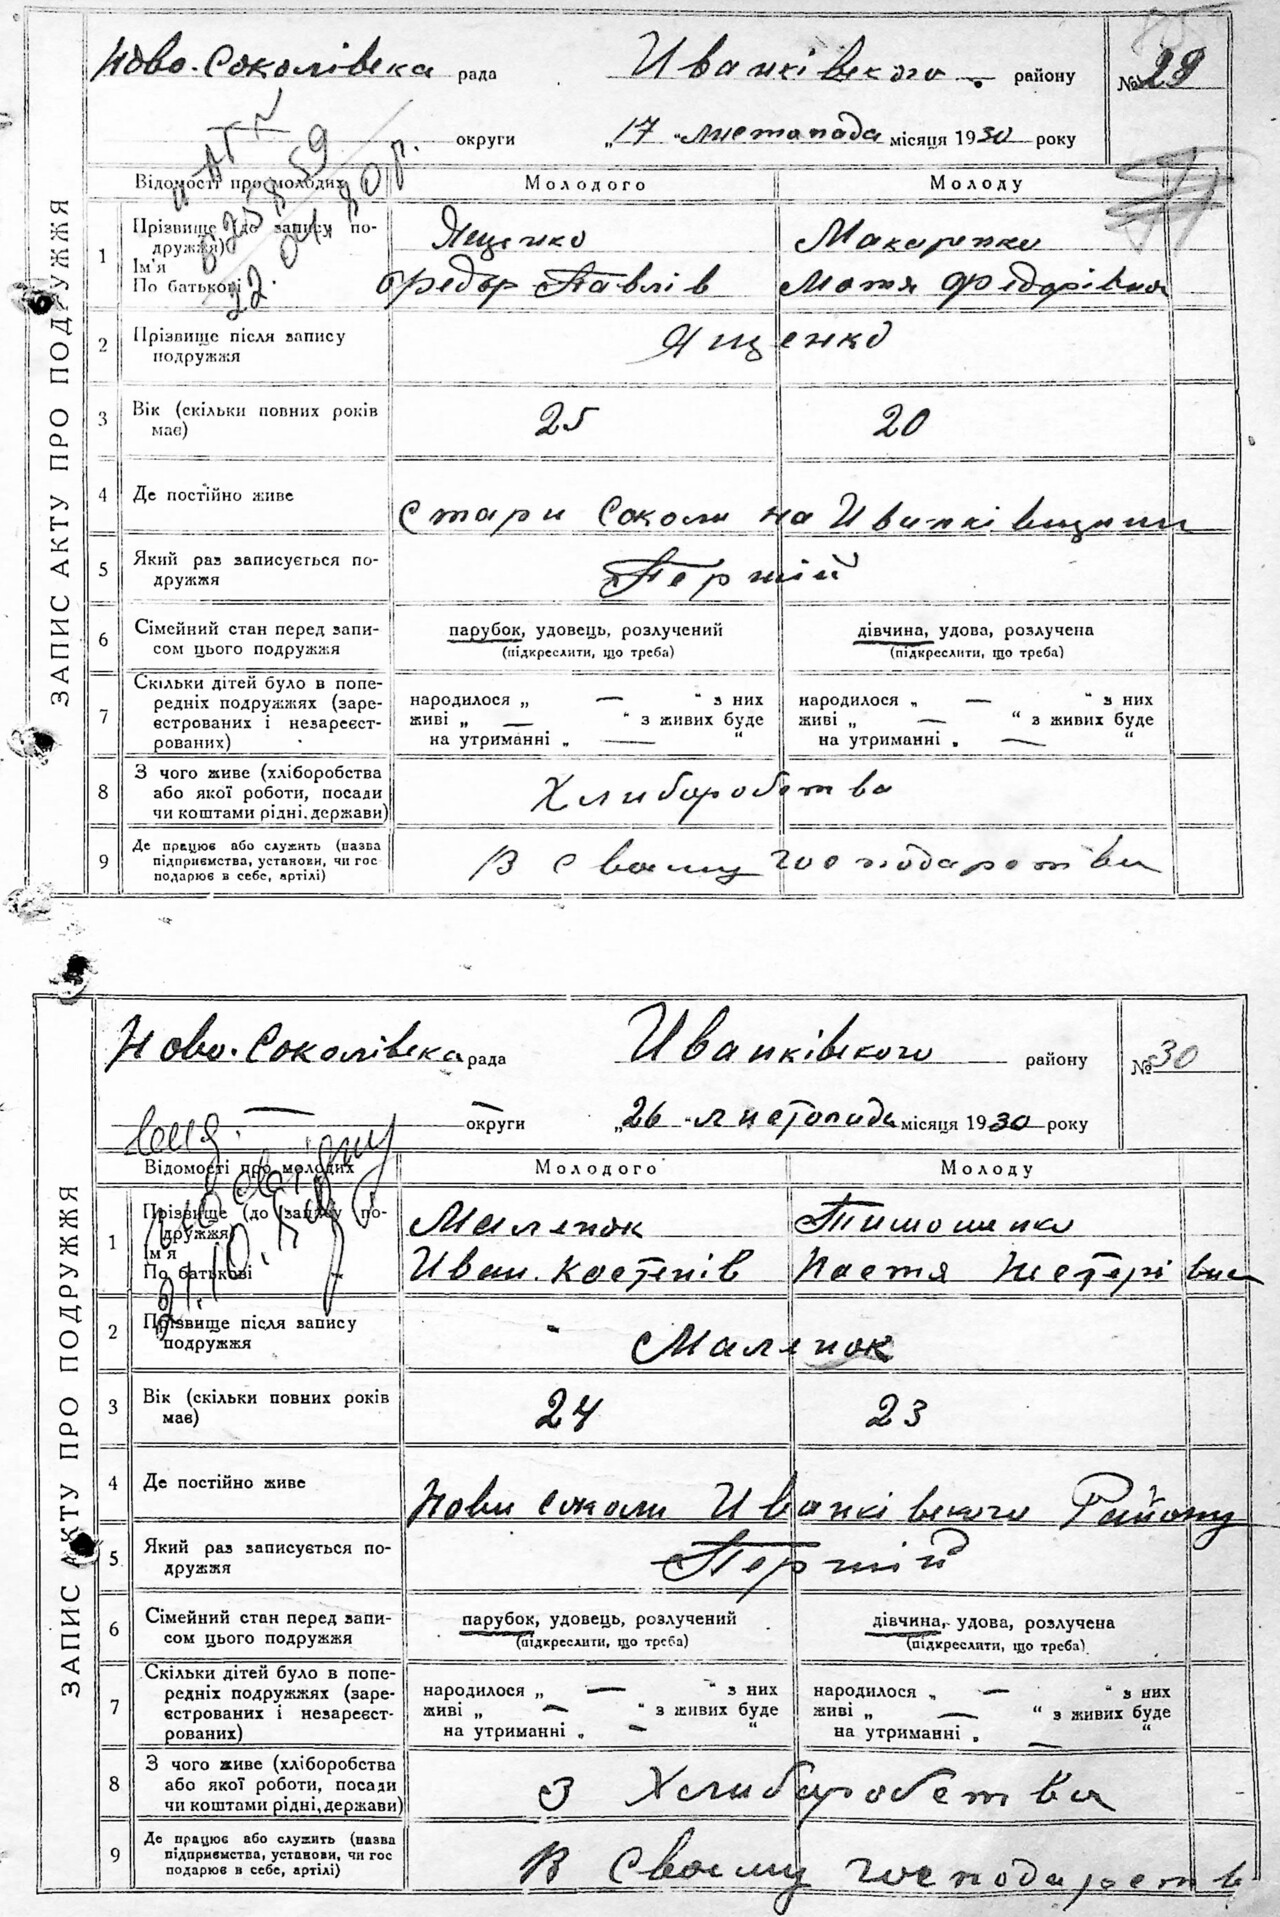 Ново-Соколівська рада Иванківського району № 29
округи „17“ листопада місяця 1930 року
Відомості про молодих Молодого Молоду
ЗАПИС АКТУ ПРО ПОДРУЖЖЯ
1 Прізвище (до запису по-
дружжя) Ященко Макаренко
Ім'я
По батькові Федор Павлів Мотя Федорівна
025859
22.04.80р.
2 Прізвище після запису
подружжя Ященко
3 Вік (скільки повних років
має) 25 20
4 Де постійно живе Стари Соколи на Иванківщини
5 Який раз записується по-
дружжя Первий
6 Сімейний стан перед запи-
сом цього подружжя парубок, удовець, розлучений дівчина, удова, розлучена
(підкреслити, що треба) (підкреслити, що треба)
7 Скільки дітей було в попе-
редніх подружжях (заре-
єстрованих і незареєст-
рованих)
народилося „ — “ з них народилося „ — “ з них
живі „ — “ з живих буде живі „ — “ з живих буде
на утриманні „ — “ на утриманні „ — “
8 З чого живе (хліборобства
або якої роботи, посади
чи коштами рідні, держави) Хлиборобства
9 Де працює або служить (назва
підприємства, установи, чи гос
подарює в себе, артілі) В своему господарстви
Ново-Соколівська рада Иванківського району № 30
— округи „26“ листопада місяця 1930 року
Відомості про молодих Молодого Молоду
ЗАПИС АКТУ ПРО ПОДРУЖЖЯ
1 Прізвище (до запису по-
дружжя) Маленок Тимошенко
Ім'я
По батькові Иван Костенів Настя Нестерівна
2 Прізвище після запису
подружжя Маленок
3 Вік (скільки повних років
має) 24 23
4 Де постійно живе Нови Соколи Иванківського Району
5 Який раз записується по-
дружжя Первий
6 Сімейний стан перед запи-
сом цього подружжя парубок, удовець, розлучений дівчина, удова, розлучена
(підкреслити, що треба) (підкреслити, що треба)
7 Скільки дітей було в попе-
редніх подружжях (заре-
єстрованих і незареєст-
рованих)
народилося „ — “ з них народилося „ — “ з них
живі „ — “ з живих буде живі „ — “ з живих буде
на утриманні „ — “ на утриманні „ — “
8 З чого живе (хліборобства
або якої роботи, посади
чи коштами рідні, держави) З Хлиборобства
9 Де працює або служить (назва
підприємства, установи, чи гос
подарює в себе, артілі) В своему господарств